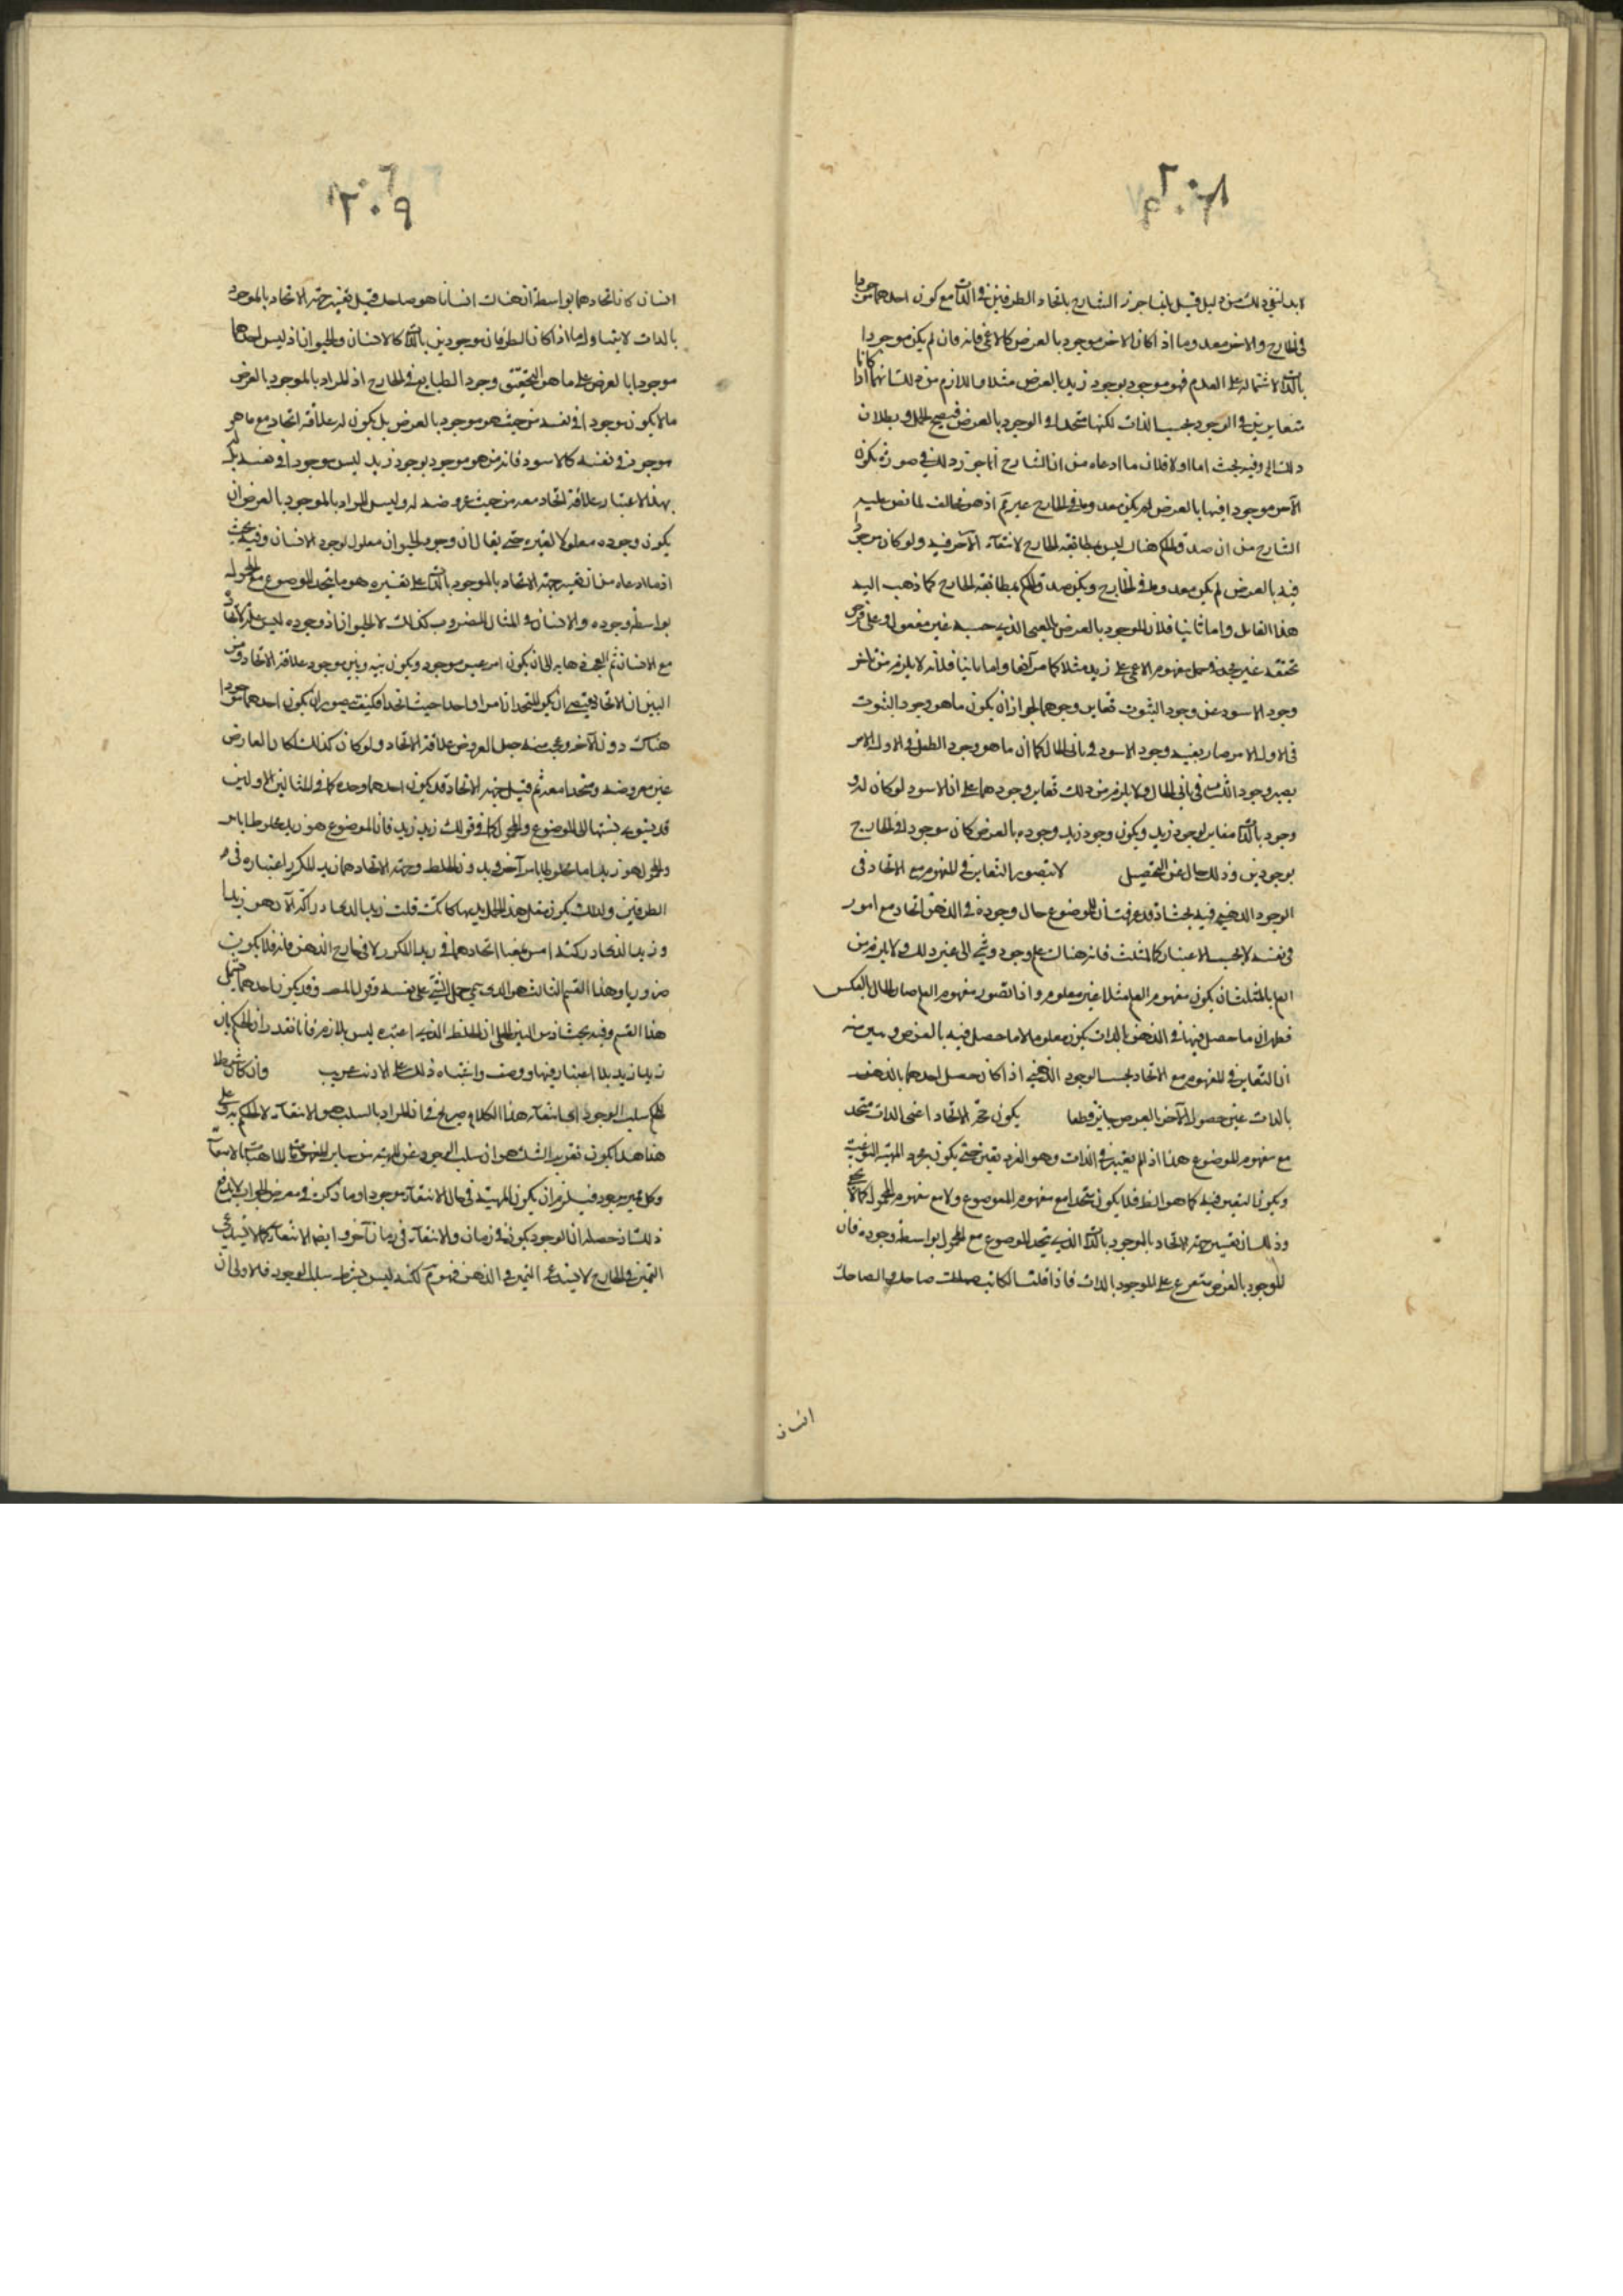 ٢٠٨
لا بد لنفي ذلك من دليل قيل انما جوز الشارح باتحاد الطرفين في الذات مع كون احدهما موجودا
في الخارج والاخر معدوما اذا كان الاخر موجودا بالعرض كالاعمى فانه وان لم يكن موجودا
بالذات لاشتماله على العدم فهو موجود بوجود زيد بالعرض مثلا فاللازم من ذلك انهما اذا كانا
متغايرين في الوجود بحسب الذات لكنهما متحدا في الوجود بالعرض فيصح الحمل وبطلان
ذلك وفيه بحث اما اولا فلان ما ادعاه من ان الشارح انما جوز ذلك في صورة يكون
الآخر موجودا فيها بالعرض لم يكن معدوما في الخارج غير تم اذ هو مخالف لما نص عليه
الشارح من ان صدق الحكم هناك ليس بمطابقة الخارج لانتفاء الآخر فيه ولو كان موجودا
فيه بالعرض لم يكن معدوما في الخارج ويكون صدق الحكم بمطابقة الخارج كما ذهب اليه
هذا القائل واما ثانيا فلان الموجود بالعرض بالمعنى الذي حسبه غير معقول وعلى فرض
تحققه غير مجد في حمل مفهوم الاعمى على زيد مثلا كما مر آنفا واما ثالثا فلانه لا يلزم من تاخر
وجود الاسود عن وجود الثوب تغاير وجودهما لجواز ان يكون ما هو وجود الثوب
في الاول الامر صار بعينه وجود الاسود في ثاني الحال كما ان ما هو وجود الطفل في الاول الامر
يصير وجود الشاب في ثاني الحال ولا يلزم من ذلك تغاير وجودهما على ان الاسود لو كان له
وجود بالذات مغاير لوجود زيد ويكون وجود زيد وجوده بالعرض كان موجودا في الخارج
بوجودين وذلك خال عن التحصيل لا يتصور التغاير في المفهوم مع الاتحاد في
الوجود الذهني فيه بحث اذ قد عرفت ان للموضوع حال وجوده في الذهن اتحاد مع امور
في نفسه لا بحسب الاعتبار كالمثلث فانه هناك علم وجود وشيء الى غير ذلك ولا يلزم من
العلم بالمثلث ان يكون مفهوم العلم مثلا غير معلوم واذا تصور مفهوم العلم صار الحال بالعكس
فظهر ان ما حصل فيها في الذهن بالذات يكون معلوما لا ما حصل فيه بالعرض وتبين منه
ان التغاير في المفهوم مع الاتحاد بحسب الوجود الذهني اذا كان حصل احدهما بالذهن
بالذات عين حصول الآخر بالعرض جايز قطعا يكون جهة الاتحاد اعني الذات متحد
مع مفهوم الموضوع هذا اذ لم يعتبر في الذات وهو الفرد تعين حتى يكون مجرد المهية النوعية
ويكون التعين فيه كما هو الظ فلا يكون متحدا مع مفهوم الموضوع ولا مع مفهوم المحمول كما لا يخفى
وذلك ان تفسير جهة الاتحاد بالموجود بالذات الذي يتحد الموضوع مع المحمول بواسطة وجوده فان
الموجود بالعرض متفرع على الموجود بالذات فاذا قلت الكاتب ضاحك والضاحك
انسان
٢٠٩
انسان كان اتحادهما بواسطة ان هناك انسانا هو ضاحك قيل تفسير جهة الاتحاد بالموجود
بالذات لا يتناول ما اذا كان الطرفان موجودين بالذات كالانسان والحيوان اذ ليس احدهما
موجودا بالعرض على ما هو التحقيق وجود الطبايع في الخارج اذ المراد بالموجود بالعرض
ما لا يكون موجودا في نفسه من حيث هو موجود بالعرض بل يكون له علاقة اتحاد مع ما هو
موجود في نفسه كالاسود فانه من هو موجود بوجود زيد ليس موجودا في نفسه بل له
بهذا الاعتبار علاقة اتحاد معه من حيث عروضه له وليس المراد بالموجود بالعرض ان
يكون وجوده معلولا لغيره حتى يقال ان وجود الحيوان معلول لوجود الانسان وفيه بحث
اذ ما ادعاه من ان تفسير جهة الاتحاد بالموجود بالذات على تفسيره هو ما يتحد الموضوع مع المحمول
بواسطة وجوده والانسان في المثال المضروب كذلك لا الحيوان اذ وجوده ليس علة لاتحاد
مع الانسان ثم العجب ذهابه الى ان يكون امر غير موجود ويكون بينه وبين موجود علاقة الاتحاد ومن
البين ان الاتحاد يقتضي ان يكون المتحدان امرا واحدا حيث اتحدا فكيف يتصور ان يكون احدهما موجودا
هناك دون الآخر وعجب منه جعل العروض علاقة الاتحاد ولو كان كذلك لكان العارض
عين معروضه ومتحدا معه ثم قيل جهة الاتحاد قد يكون احدهما وحده كما في المثالين الاولين
قد يستوي نسبتها الى الموضوع والمحمول كما في قولك زيد زيد فان الموضوع هو زيد مخلوطا بامر
والمحمول هو زيد اما مخلوطا بامر آخر او بدون الخلط وجهة الاتحاد هما زيد المكرر اعتباره في
الطرفين ولذلك يكون مثل هذا الحمل بديهيا كما كنت قلت زيد الذي ادركته الآن هو زيد
وزيد الذي ادركته امس بعينا اتحادهما في زيد المكرر لا في خارج الذهن منه فلا يكون
ضروريا وهذا القسم الثالث هو الذي يسمى حمل الشيء على نفسه وقول المصـ وقد يكون احدهما يشمل
هذا القسم وفيه بحث اذ من البين الجلي ان الخلط الذي اعتبره ليس بلازم فانا نقدر ان الحكم بان
زيدا زيد بلا اعتبار فيها ووصف واشتباه ذلك على الاذن عريب وان كان شرطا
للحكم سلب الوجود اي انتفاء هذا الكلام صريح في ان المراد بالسلب هو الانتفاء لا الحكم به على
هذا يكون تقرير الشك هو ان سلب الوجود عن المهية من ساير المفهومات
وكل غير موجود فيلزم ان يكون المهية في حال الانتفاء موجودا وما ذكره في معرض الجواب لا يدفع
ذلك اذ حصله ان الوجود يكون في زمان والانتفاء في زمان آخر وايضا الانتفاء كما لا يستدعي
التميز في الخارج لا يستدعي التميز في الذهن فهو تم لكنه ليس بشرط سلب الوجود فالاولى ان